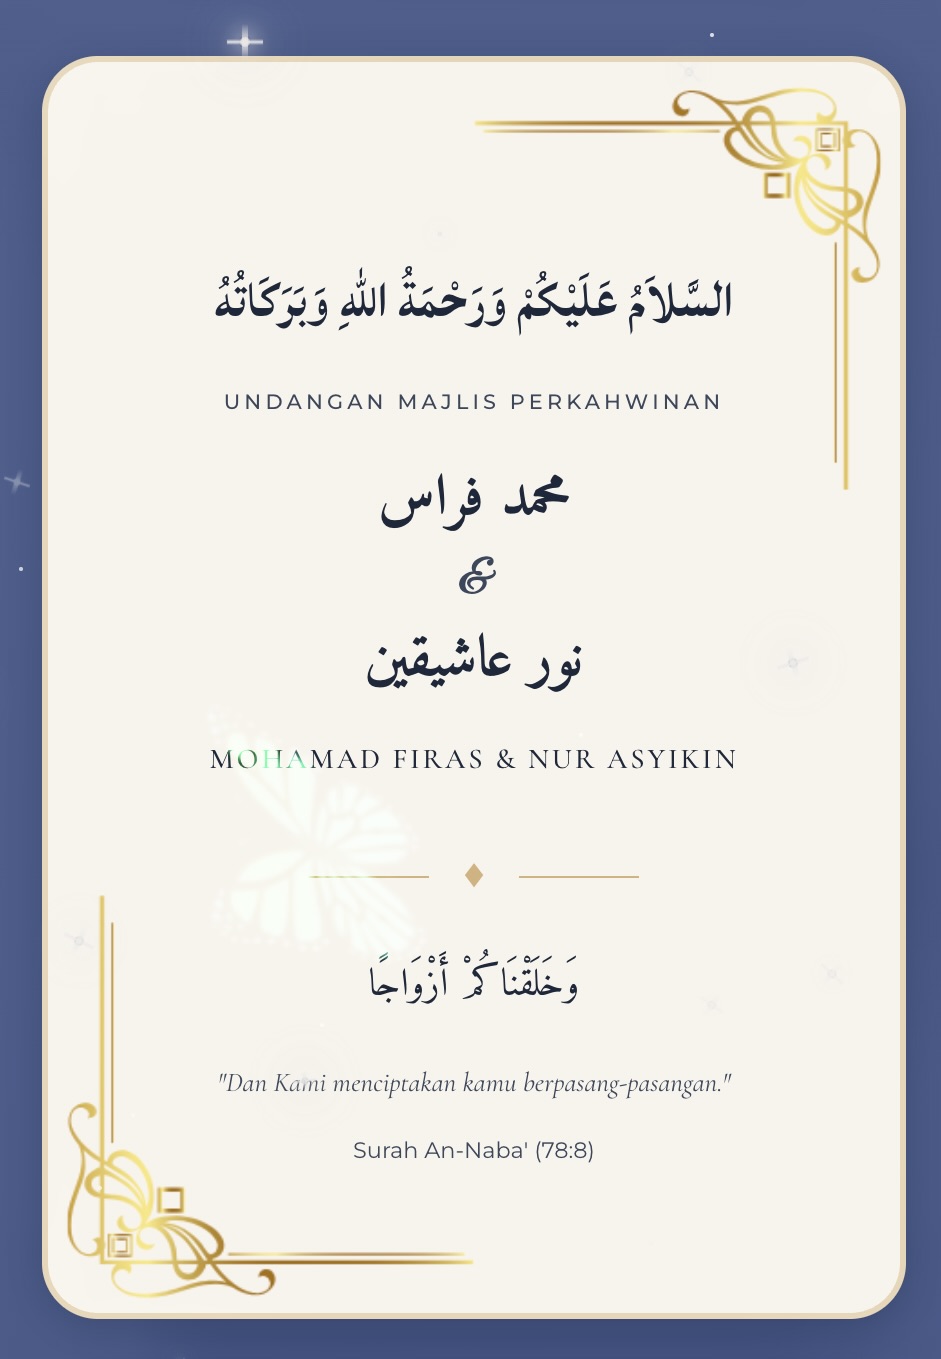 السَّلاَمُ عَلَيْكُمْ وَرَحْمَةُ اللهِ وَبَرَكَاتُهُ
UNDANGAN MAJLIS PERKAHWINAN
محمد فراس
&
نور عاشيقين
MOHAMAD FIRAS & NUR ASYIKIN
وَخَلَقْنَاكُمْ أَزْوَاجًا
"Dan Kami menciptakan kamu berpasang-pasangan."
Surah An-Naba' (78:8)